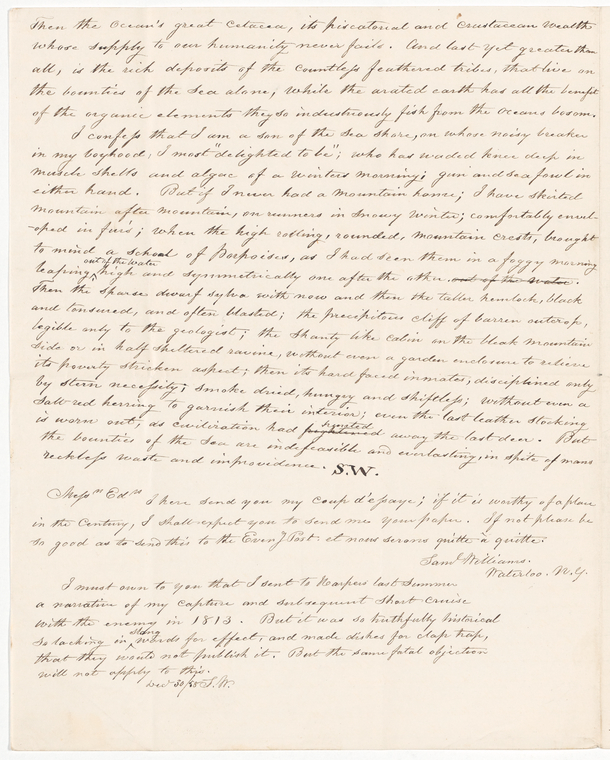 Then the Ocean's great Cetacea, its piscatorial and crustacean wealth
whose supply to our humanity never fails. And last yet greater than
all, is the rich deposits of the countless feathered tribes, that live on
the bounties of the Sea alone, while the arated earth has all the benefit
of the organic elements they so industriously fish from the oceans bosom.
I confess that I am a son of the Sea Shore, on whose noisy breaker
in my boyhood, I most "delighted to be"; who has waded knee deep in
muscle shells and algae of a winters morning; gun and sea fowl in
either hand. But if I never had a mountain home; I have skirted
mountain after mountain, on runners in snowy winter, comfortably envel-
oped in furs; when the high rolling, rounded, mountain crests, brought
to mind a school of Porpoises, as I had seen them in a foggy morning
out of the water
leaping high and symmetrically one after the other out of the water.
Then the sparse dwarf sylva with now and then the taller hemlock, black
and tonsured, and often blasted; the precipitous cliff of barren outcrop,
legible only to the geologist; the shanty like cabin on the bleak mountain
side or in half sheltered ravine, without even a garden enclosure to relieve
its poverty stricken aspect; then its hard faced inmates, disciplined only
by stern necessity; smoke dried, hungry and shiftless; without even a
salt red herring to garnish their interior; even the last leather stocking
is worn out, as civilization had frightened away the last deer. But
the bounties of the Sea are indefeasible and everlasting, in spite of mans
reckless waste and improvidence. S.W.
Messrs Edrs
I here send you my coup d'epaye; if it is worthy of a place
in the Century, I shall expect you to send me your paper. If not please be
so good as to send this to the Eveng Post. et nous serons quitte a quitte.
Saml Williams.
Waterloo. N.Y.
I must own to you that I sent to Harpers last Summer
a narrative of my capture and subsequent short cruise
with the enemy in 1813. But it was so truthfully historical
slang
so lacking in words for effect, and made dishes for clap trap,
that they would not publish it. But the same fatal objection
will not apply to this.
Decr 30/58 S.W.